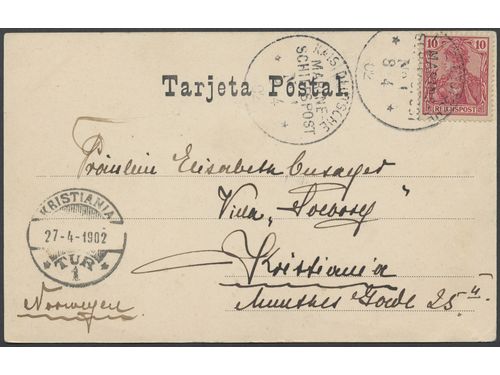 KAIS. DEUTSCHE
MARINE-
SCHIFFSPOST
No 1
8 4
02
10 10
REICHSPOST
Tarjeta Postal
Fräulein Elisabeth
Villa „
KRISTIANIA
27-4-1902
TUR
1
Kristiania
Norwegen
Munthes Gade 25